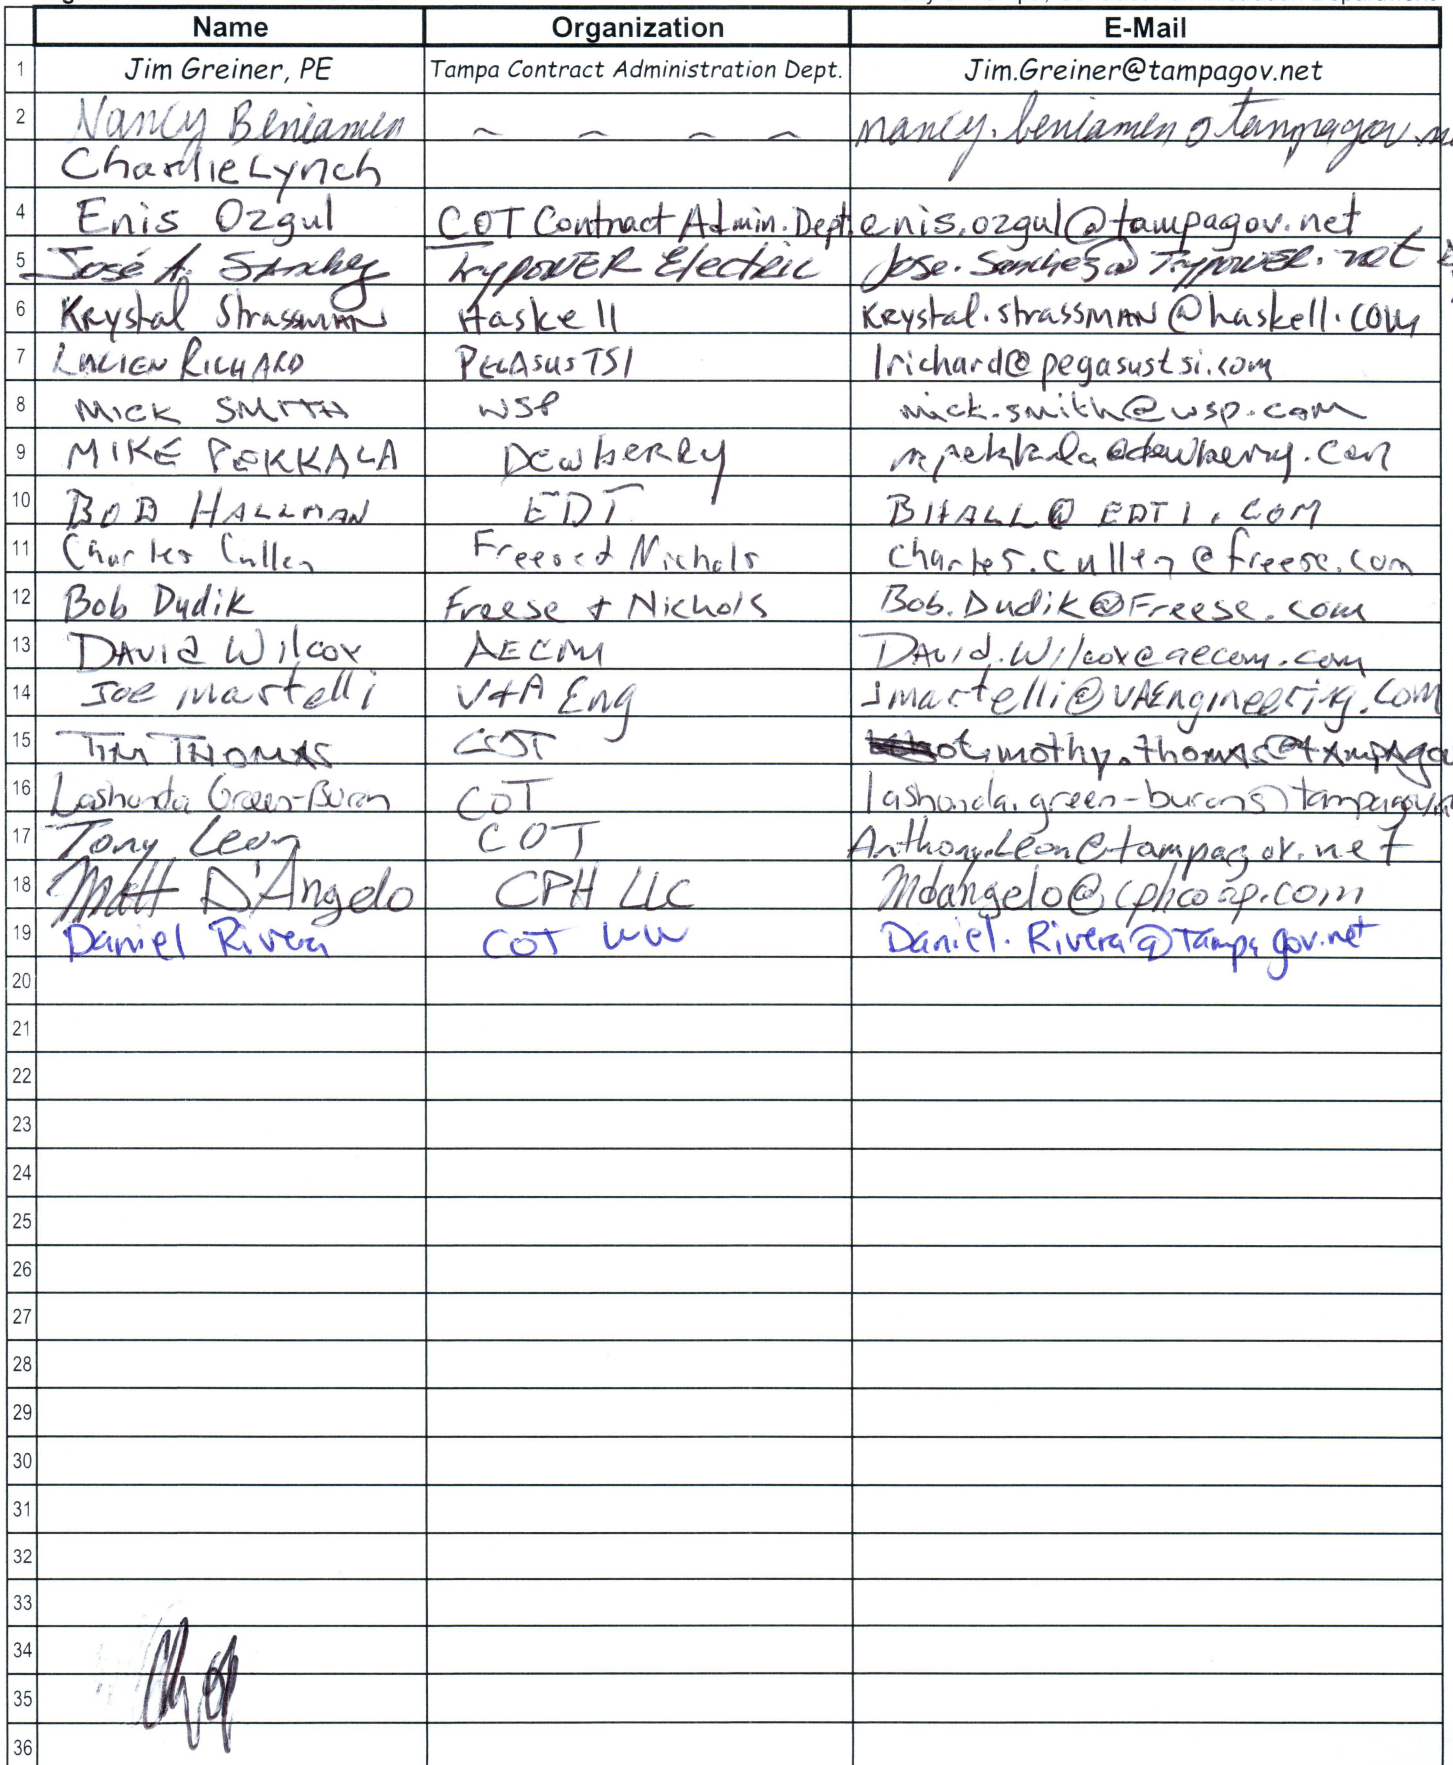 Name Organization E-Mail
1 Jim Greiner, PE Tampa Contract Administration Dept. Jim.Greiner@tampagov.net
2 Nancy Beniamen ~ ~ ~ ~ nancy.beniamen@tampagov.n
Charlie Lynch
4 Enis Ozgul COT Contract Admin. Dept. enis.ozgul@tampagov.net
5 José A. Sanchez TryPOWER Electric Jose.Sanchez@TryPOWER.net
6 Krystal Strassman Haskell Krystal.strassman@haskell.com
7 Lucien Richard Pegasus TSI lrichard@pegasustsi.com
8 Mick Smith WSP mick.smith@wsp.com
9 MIKE PEKKALA Dewberry mpekkala@dewberry.com
10 BOB HALLMAN EDT BHALL@EDTI.COM
11 Charles Cullen Freese & Nichols charles.cullen@freese.com
12 Bob Dudik Freese & Nichols Bob.Dudik@Freese.com
13 David Wilcox AECOM David.Wilcox@aecom.com
14 Joe Martelli V&A Eng jmartelli@VAEngineering.com
15 Tim THOMAS COT timothy.thomas@tampago
16 Lashonda Green-Buron COT lashonda.green-buron@tampagov.n
17 Tony Leon COT Anthony.Leon@tampagov.net
18 Matt D'Angelo CPH LLC Mdangelo@cphcorp.com
19 Daniel Rivera COT WW Daniel.Rivera@Tampagov.net
20
21
22
23
24
25
26
27
28
29
30
31
32
33
34
35
36